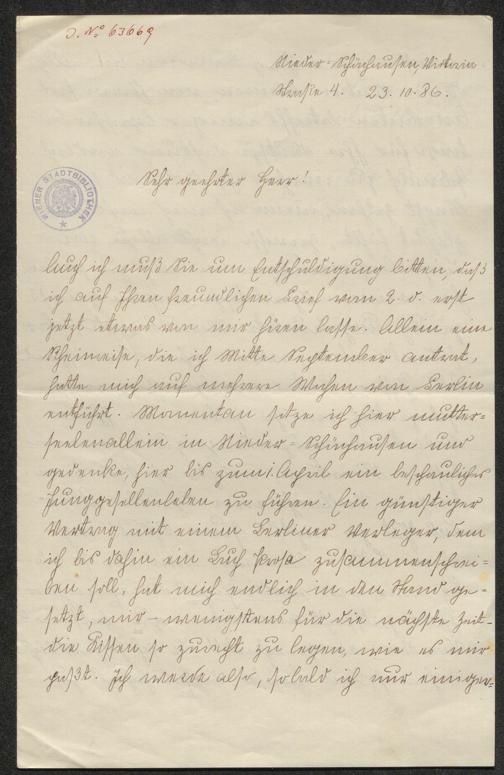 J. No 63669
Nieder-Schönhausen, Victoria
Straße 4. 23.10.86.
WIENER STADTBIBLIOTHEK
Sehr geehrter Herr!
Auch ich muß Sie um Entschuldigung bitten, daß
ich auf Ihren freundlichen Brief vom 2. d. erst
jetzt etwas von mir hören lasse. Allein eine
Rheinreise, die ich Mitte September antrat,
hatte mich auf mehrere Wochen von Berlin
entführt. Momentan sitze ich hier mutter-
seelenallein in Nieder-Schönhausen und
gedenke, hier bis zum 1. April ein beschauliches
Junggesellenleben zu führen. Ein günstiger
Vertrag mit einem Berliner Verleger, dem
ich bis dahin ein Buch Prosa zusammenschrei-
ben soll, hat mich endlich in den Stand ge-
setzt, mir - wenigstens für die nächste Zeit -
die Kissen so zurecht zu legen, wie es mir
paßt. Ich werde also, sobald ich nur einiger-